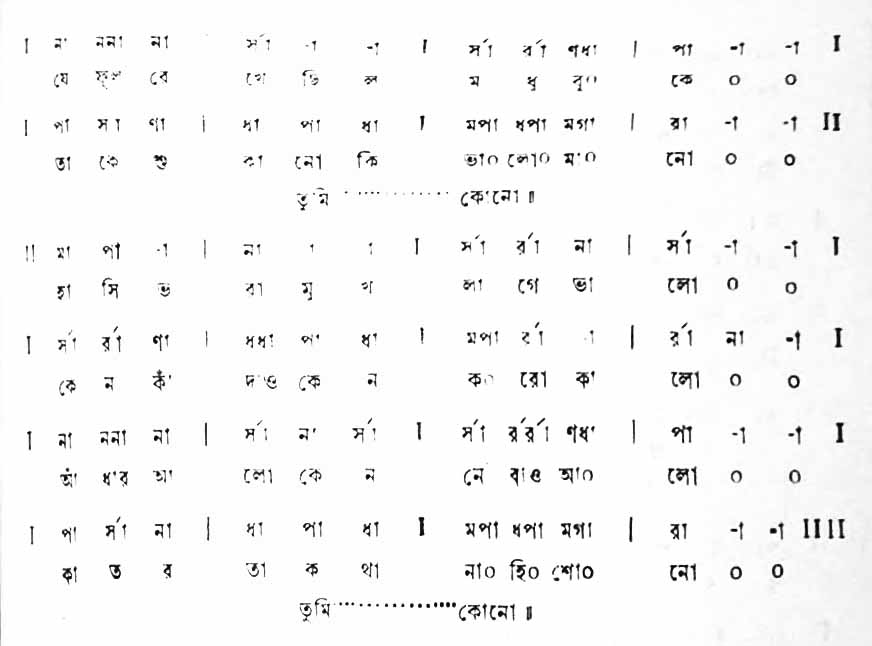 I না ননা না র্সা -া -া I র্সা র্রা ণধা | পা -া -া I
যে ফুল বে খে ছি ল ম ধু বু০ কে ০ ০
I পা র্সা ণা | ধা পা ধা I মপা ধপা মগা | রা -া -া II
তা কে শু কা নো কি ভা০ লো০ মা০ নো ০ ০
তুমি ············ কোনো ॥
II মা পা -া | না া া I র্সা র্রা না | র্সা -া -া I
হা সি ভ রা মু খ লা গে ভা লো ০ ০
I র্সা র্রা ণা | ধধা পা ধা I মপা র্রা -া | র্রা না -া I
কে ন কাঁ দাও কে ন ক০ রো কা লো ০ ০
I না ননা না | র্সা না র্সা I র্সা র্রর্রা ণধা | পা -া -া I
আঁ ধার আ লো কে ন নে বাও আ০ লো ০ ০
I পা র্সা না | ধা পা ধা I মপা ধপা মগা | রা -া -া IIII
কা ত র তা ক থা না০ হি০ শো০ নো ০ ০
তুমি ················ কোনো ॥